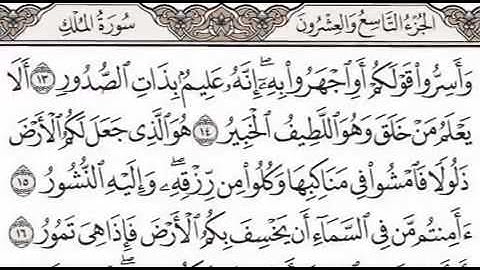 الجزء التاسع والعشرون سورة الملك
وَأَسِرُّوا۟ قَوْلَكُمْ أَوِ ٱجْهَرُوا۟ بِهِۦٓ ۖ إِنَّهُۥ عَلِيمٌۢ بِذَاتِ ٱلصُّدُورِ ١٣ أَلَا
يَعْلَمُ مَنْ خَلَقَ وَهُوَ ٱللَّطِيفُ ٱلْخَبِيرُ ١٤ هُوَ ٱلَّذِى جَعَلَ لَكُمُ ٱلْأَرْضَ
ذَلُولًا فَٱمْشُوا۟ فِى مَنَاكِبِهَا وَكُلُوا۟ مِن رِّزْقِهِۦ ۖ وَإِلَيْهِ ٱلنُّشُورُ ١٥
ءَأَمِنتُم مَّن فِى ٱلسَّمَآءِ أَن يَخْسِفَ بِكُمُ ٱلْأَرْضَ فَإِذَا هِىَ تَمُورُ ١٦